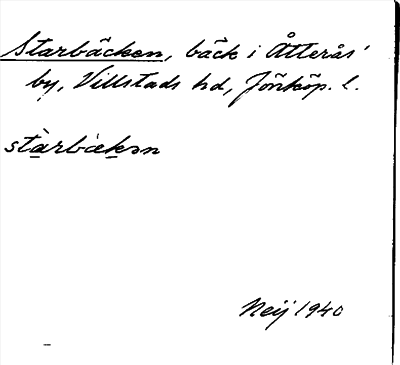 Starbäcken, bäck i Åtterås'
by, Villstads hd, Jönköp. l.
stàrbàkən
Neij 1940